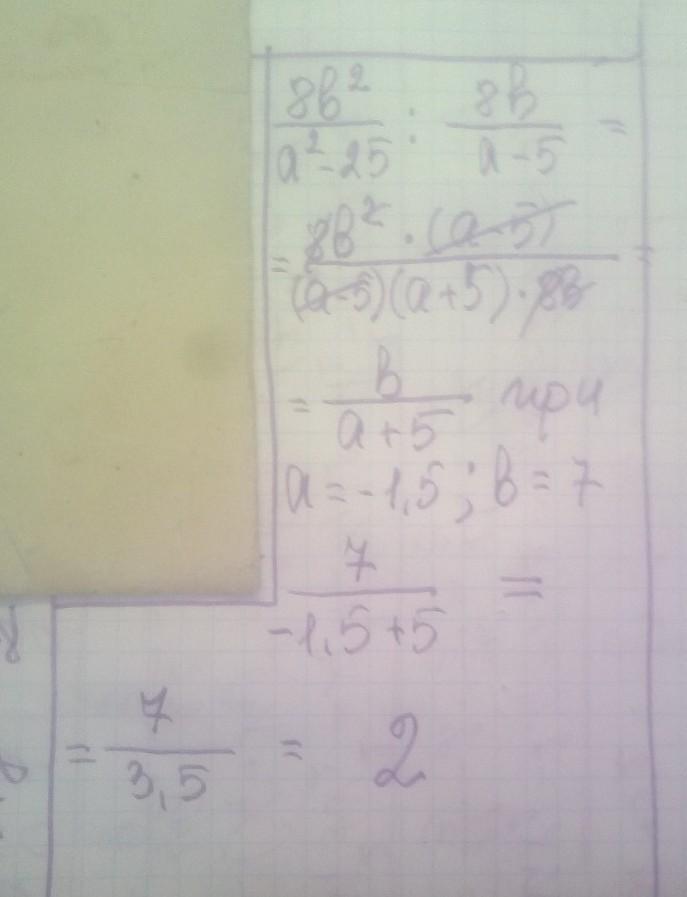 8b²/(a²-25) : 8b/(a-5) =
= 8b²·(a-5)/((a-5)(a+5)·8b) =
= b/(a+5) при
a = -1,5; b = 7
7/(-1,5+5) =
= 7/3,5 = 2